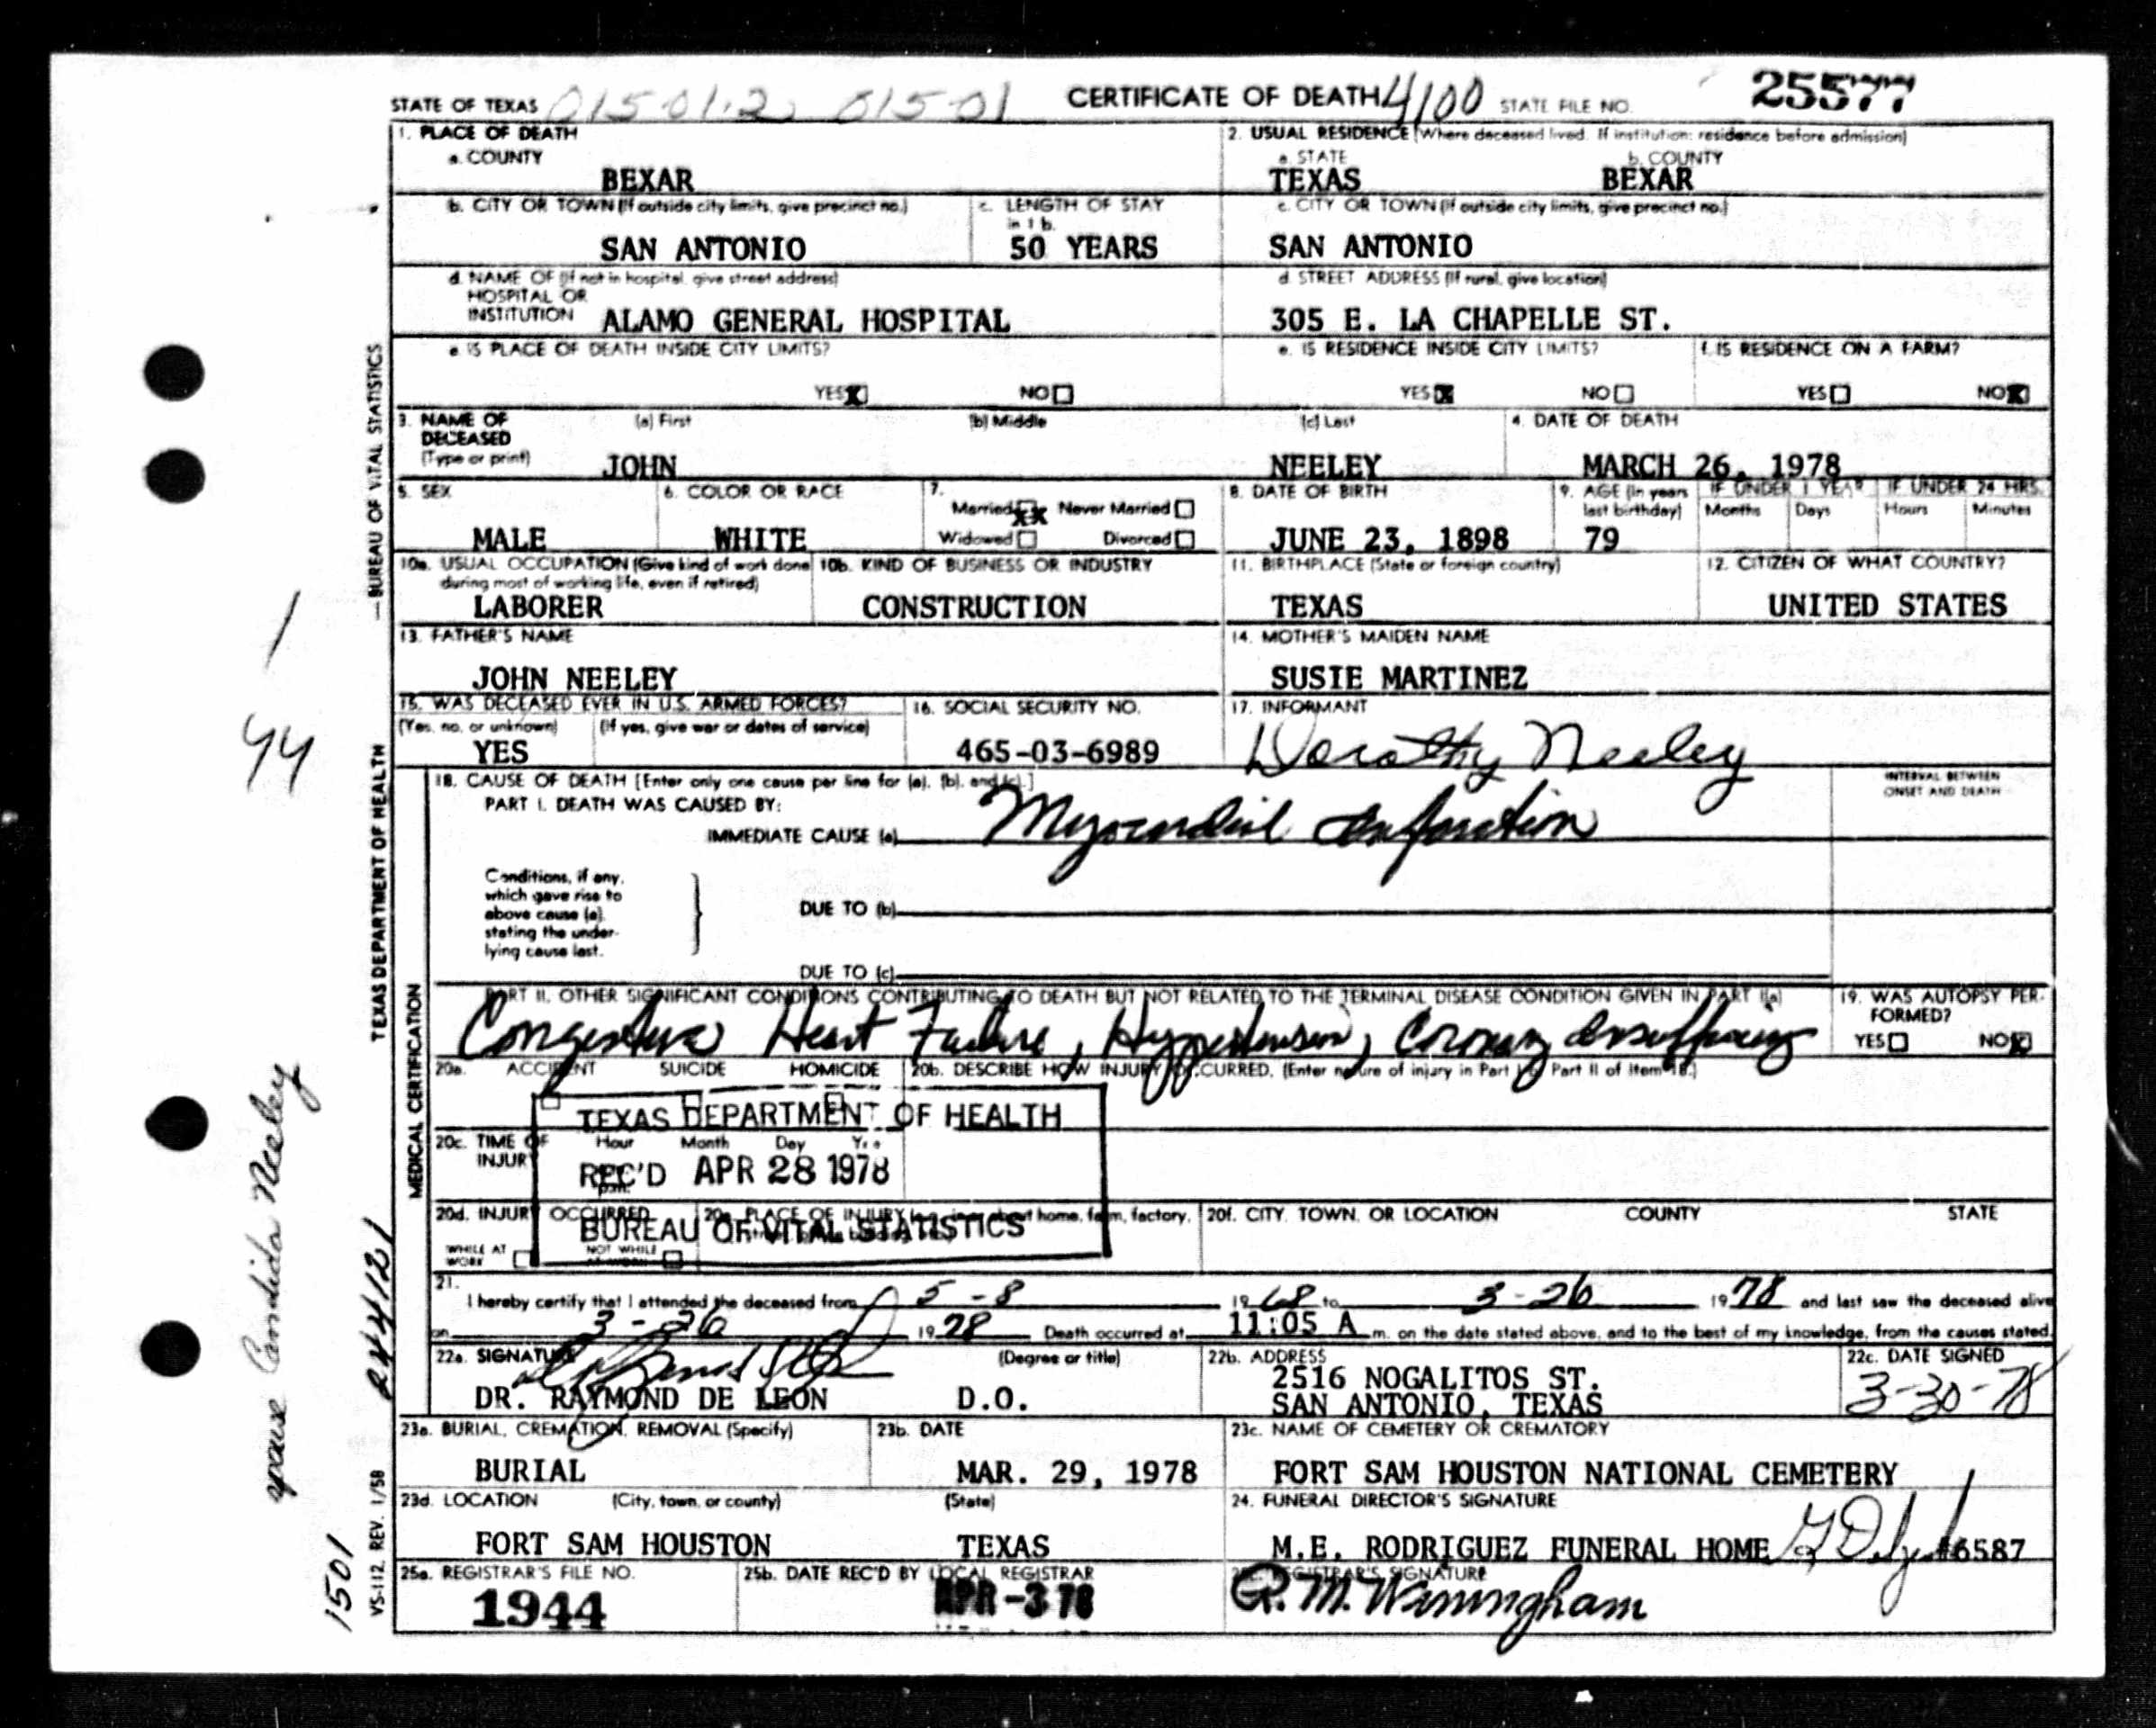 STATE OF TEXAS 015-01-2 015-01 CERTIFICATE OF DEATH 4100 STATE FILE NO. 25577
1. PLACE OF DEATH
a. COUNTY
BEXAR
2. USUAL RESIDENCE (Where deceased lived. If institution: residence before admission)
a. STATE b. COUNTY
TEXAS BEXAR
b. CITY OR TOWN (If outside city limits, give precinct no.)
SAN ANTONIO
c. LENGTH OF STAY
in 1 b.
50 YEARS
c. CITY OR TOWN (If outside city limits, give precinct no.)
SAN ANTONIO
d. NAME OF (If not in hospital, give street address)
HOSPITAL OR
INSTITUTION ALAMO GENERAL HOSPITAL
d. STREET ADDRESS (If rural, give location)
305 E. LA CHAPELLE ST.
e. IS PLACE OF DEATH INSIDE CITY LIMITS?
YES X NO
e. IS RESIDENCE INSIDE CITY LIMITS?
YES X NO
f. IS RESIDENCE ON A FARM?
YES NO X
3. NAME OF DECEASED
(Type or print)
(a) First (b) Middle (c) Last
JOHN NEELEY
4. DATE OF DEATH
MARCH 26, 1978
5. SEX
MALE
6. COLOR OR RACE
WHITE
7.
Married XX Never Married
Widowed Divorced
8. DATE OF BIRTH
JUNE 23, 1898
9. AGE (In years
last birthday)
79
IF UNDER 1 YEAR IF UNDER 24 HRS.
Months Days Hours Minutes
10a. USUAL OCCUPATION (Give kind of work done
during most of working life, even if retired)
LABORER
10b. KIND OF BUSINESS OR INDUSTRY
CONSTRUCTION
11. BIRTHPLACE (State or foreign country)
TEXAS
12. CITIZEN OF WHAT COUNTRY?
UNITED STATES
13. FATHER'S NAME
JOHN NEELEY
14. MOTHER'S MAIDEN NAME
SUSIE MARTINEZ
15. WAS DECEASED EVER IN U.S. ARMED FORCES?
(Yes, no, or unknown) (If yes, give war or dates of service)
YES
16. SOCIAL SECURITY NO.
465-03-6989
17. INFORMANT
Dorothy Neeley
18. CAUSE OF DEATH [Enter only one cause per line for (a), (b), and (c).]
PART I. DEATH WAS CAUSED BY:
IMMEDIATE CAUSE (a) Myocardial Infarction
INTERVAL BETWEEN
ONSET AND DEATH
Conditions, if any,
which gave rise to
above cause (a)
stating the under-
lying cause last.
DUE TO (b)
DUE TO (c)
PART II. OTHER SIGNIFICANT CONDITIONS CONTRIBUTING TO DEATH BUT NOT RELATED TO THE TERMINAL DISEASE CONDITION GIVEN IN PART I(a)
Congestive Heart Failure, Hypertension, Coronary Insufficiency
19. WAS AUTOPSY PER-
FORMED?
YES NO X
20a. ACCIDENT SUICIDE HOMICIDE
20b. DESCRIBE HOW INJURY OCCURRED. (Enter nature of injury in Part I or Part II of Item 18.)
TEXAS DEPARTMENT OF HEALTH
REC'D APR 28 1978
BUREAU OF VITAL STATISTICS
20c. TIME OF
INJURY
Hour Month Day Year
p.m.
20d. INJURY OCCURRED
WHILE AT
WORK
NOT WHILE
AT WORK
20e. PLACE OF INJURY (e.g., in or about home, farm, factory,
20f. CITY, TOWN, OR LOCATION COUNTY STATE
21.
I hereby certify that I attended the deceased from 5-8 1968 to 3-26 1978 and last saw the deceased alive
on 3-26 1978 Death occurred at 11:05 A m. on the date stated above, and to the best of my knowledge, from the causes stated.
22a. SIGNATURE (Degree or title)
DR. RAYMOND DE LEON D.O.
22b. ADDRESS
2516 NOGALITOS ST.
SAN ANTONIO, TEXAS
22c. DATE SIGNED
3-30-78
23a. BURIAL, CREMATION, REMOVAL (Specify)
BURIAL
23b. DATE
MAR. 29, 1978
23c. NAME OF CEMETERY OR CREMATORY
FORT SAM HOUSTON NATIONAL CEMETERY
23d. LOCATION (City, town, or county) (State)
FORT SAM HOUSTON TEXAS
24. FUNERAL DIRECTOR'S SIGNATURE
M.E. RODRIGUEZ FUNERAL HOME #6587
25a. REGISTRAR'S FILE NO.
1944
25b. DATE REC'D BY LOCAL REGISTRAR
APR -3 78
25c. REGISTRAR'S SIGNATURE
MEDICAL CERTIFICATION
TEXAS DEPARTMENT OF HEALTH — BUREAU OF VITAL STATISTICS
VS-112 REV. 1/58
1
44
spouse Candida Neeley
244121
1501